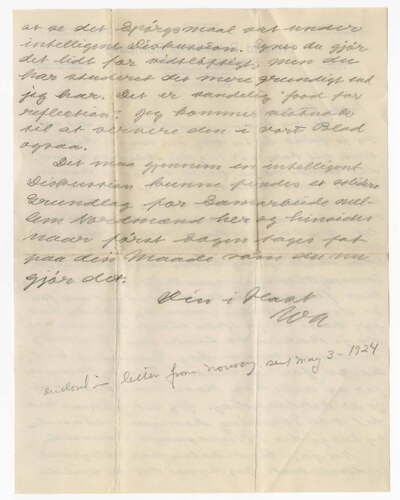 at se det Spörgsmaal sat under
intelligent Diskussion. Synes du gjör
det lidt for vidtløftigt, men du
har studeret det mere grundigt end
jeg har. Det er sandelig "food for
reflection." Jeg kommer
til at den i vort Blad
ogsaa.
Det maa gjennem en intelligent
Diskussion kunne findes et solidere
Grundlag for Samarbeide mel-
lem Nordmænd her og hinsides
naar först Sagen tages fat
paa den Maade som du nu
gjör det.
Din i Hast
enclosed in letter from Norway sent May 3 - 1924